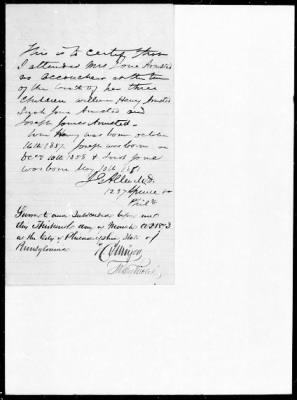 This is to certify that
I attended Mrs Jane Armsted
as accoucheur at the time
of the birth of her three
Children William Henry Armsted
Jane Armsted and
Joseph James Armsted.
Wm Henry was born October
16th 1857. Joseph was born on
Dec 10th 1858 &
was born May 10th
1237 Spruce St
Phila
Sworn & and Subscribed before me
this day of March AD
at the City of Philadelphia State of
Pennsylvania